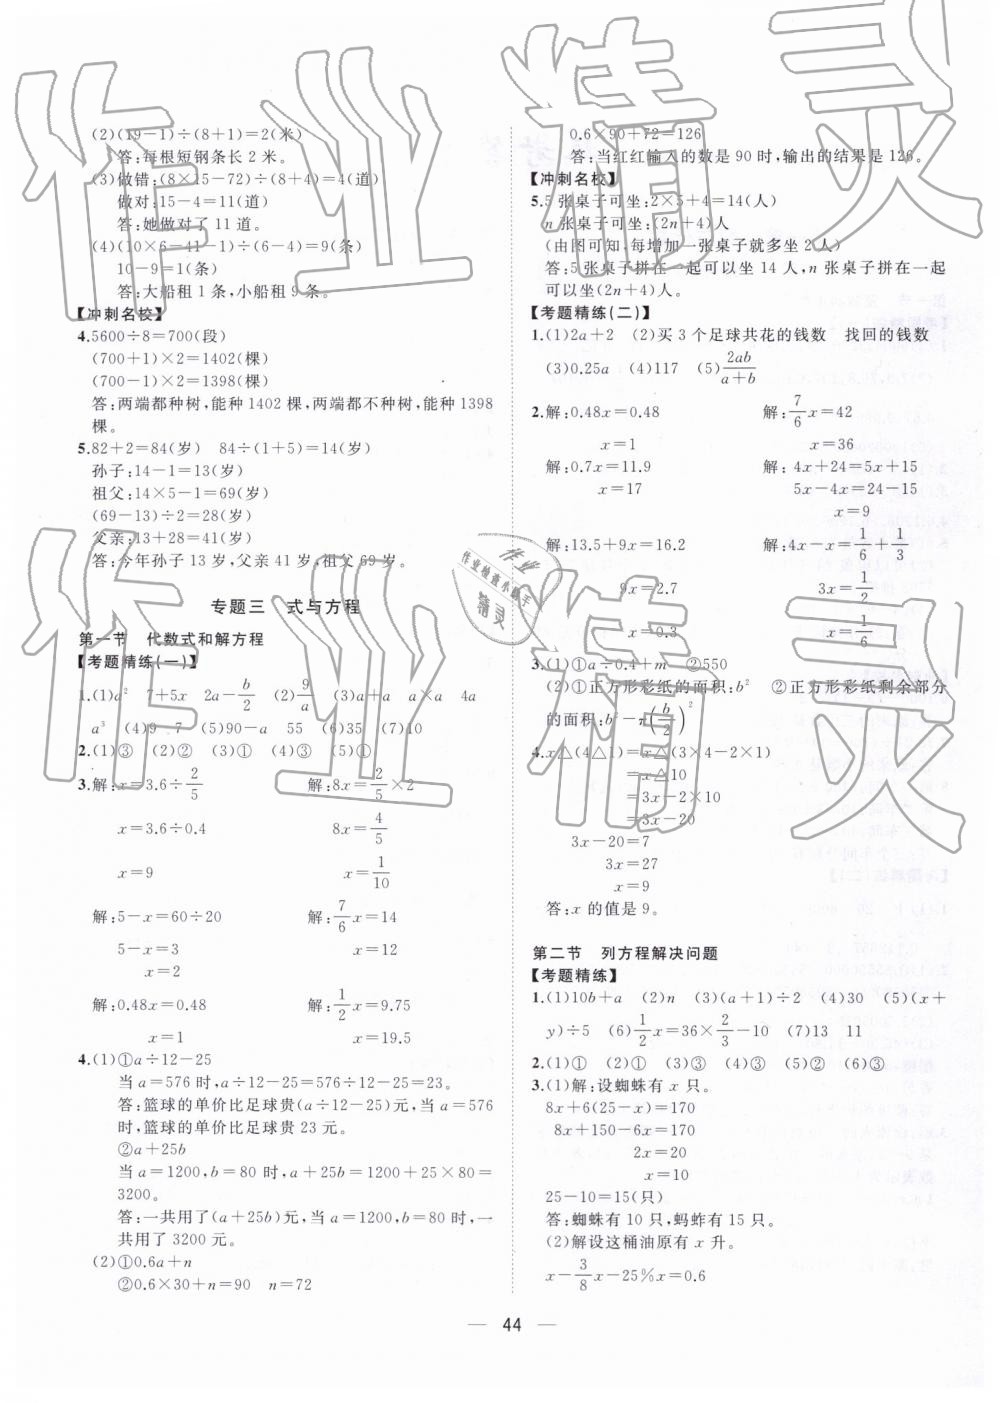 (2)(19-1)÷(8+1)=2(米)
答:每根短钢条长 2 米。
(3)做错:(8×15-72)÷(8+4)=4(道)
做对:15-4=11(道)
答:她做对了 11 道。
(4)(10×6-41-1)÷(6-4)=9(条)
10-9=1(条)
答:大船租 1 条,小船租 9 条。
【冲刺名校】
4.5600÷8=700(段)
(700+1)×2=1402(棵)
(700-1)×2=1398(棵)
答:两端都种树,能种 1402 棵,两端都不种树,能种 1398
棵。
5.82+2=84(岁) 84÷(1+5)=14(岁)
孙子:14-1=13(岁)
祖父:14×5-1=69(岁)
(69-13)÷2=28(岁)
父亲:13+28=41(岁)
答:今年孙子 13 岁,父亲 41 岁,祖父 69 岁。
专题三 式与方程
第一节 代数式和解方程
【考题精练(一)】
1.(1)a² 7+5x 2a-b/2 (2)9/a (3)a+a a×a 4a
a³ (4)9 7 (5)90-a 55 (6)35 (7)10
2.(1)③ (2)② (3)① (4)③ (5)①
3.解:x=3.6÷2/5 解:8x=2/5×2
x=3.6÷0.4 8x=4/5
x=9 x=1/10
解:5-x=60÷20 解:7/6x=14
5-x=3 x=12
x=2
解:0.48x=0.48 解:1/2x=9.75
x=1 x=19.5
4.(1)①a÷12-25
当 a=576 时,a÷12-25=576÷12-25=23。
答:篮球的单价比足球贵(a÷12-25)元,当 a=576
时,篮球的单价比足球贵 23 元。
②a+25b
当 a=1200,b=80 时,a+25b=1200+25×80=
3200。
答:一共用了(a+25b)元,当 a=1200,b=80 时,一
共用了 3200 元。
(2)①0.6a+n
②0.6×30+n=90 n=72
0.6×90+72=126
答:当红红输入的数是 90 时,输出的结果是 126。
【冲刺名校】
5.5 张桌子可坐:2×5+4=14(人)
n 张桌子可坐:(2n+4)人
(由图可知,每增加一张桌子就多坐 2 人)
答:5 张桌子拼在一起可以坐 14 人,n 张桌子拼在一起
可以坐(2n+4)人。
【考题精练(二)】
1.(1)2a+2 (2)买 3 个足球共花的钱数 找回的钱数
(3)0.25a (4)117 (5)2ab/a+b
2.解:0.48x=0.48 解:7/6x=42
x=1 x=36
解:0.7x=11.9 解:4x+24=5x+15
x=17 5x-4x=24-15
x=9
解:13.5+9x=16.2 解:4x-x=1/6+1/3
9x=2.7 3x=1/2
x=0.3 x=1/6
3.(1)①a÷0.4+m ②550
(2)①正方形彩纸的面积:b² ②正方形彩纸剩余部分
的面积:b²-π(b/2)²
4.x△(4△1)=x△(3×4-2×1)
=x△10
=3x-2×10
=3x-20
3x-20=7
3x=27
x=9
答:x 的值是 9。
第二节 列方程解决问题
【考题精练】
1.(1)10b+a (2)n (3)(a+1)÷2 (4)30 (5)(x+
y)÷5 (6)1/2x=36×2/3-10 (7)13 11
2.(1)① (2)① (3)③ (4)③ (5)② (6)③
3.(1)解:设蜘蛛有 x 只。
8x+6(25-x)=170
8x+150-6x=170
2x=20
x=10
25-10=15(只)
答:蜘蛛有 10 只,蚂蚱有 15 只。
(2)解设这桶油原有 x 升。
x-3/8x-25%x=0.6
44
作业精灵
作业精灵
作业
作业检查小助手
精灵